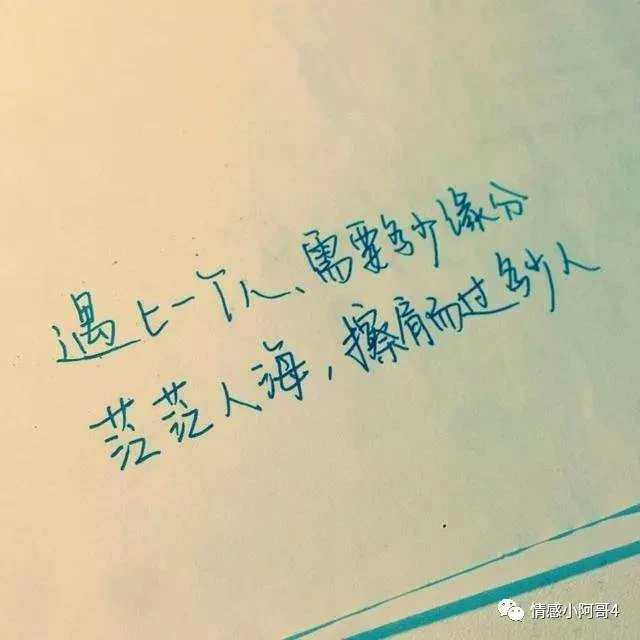 遇上一个人、需要多少缘分
茫茫人海，擦肩而过多少人
情感小阿哥4